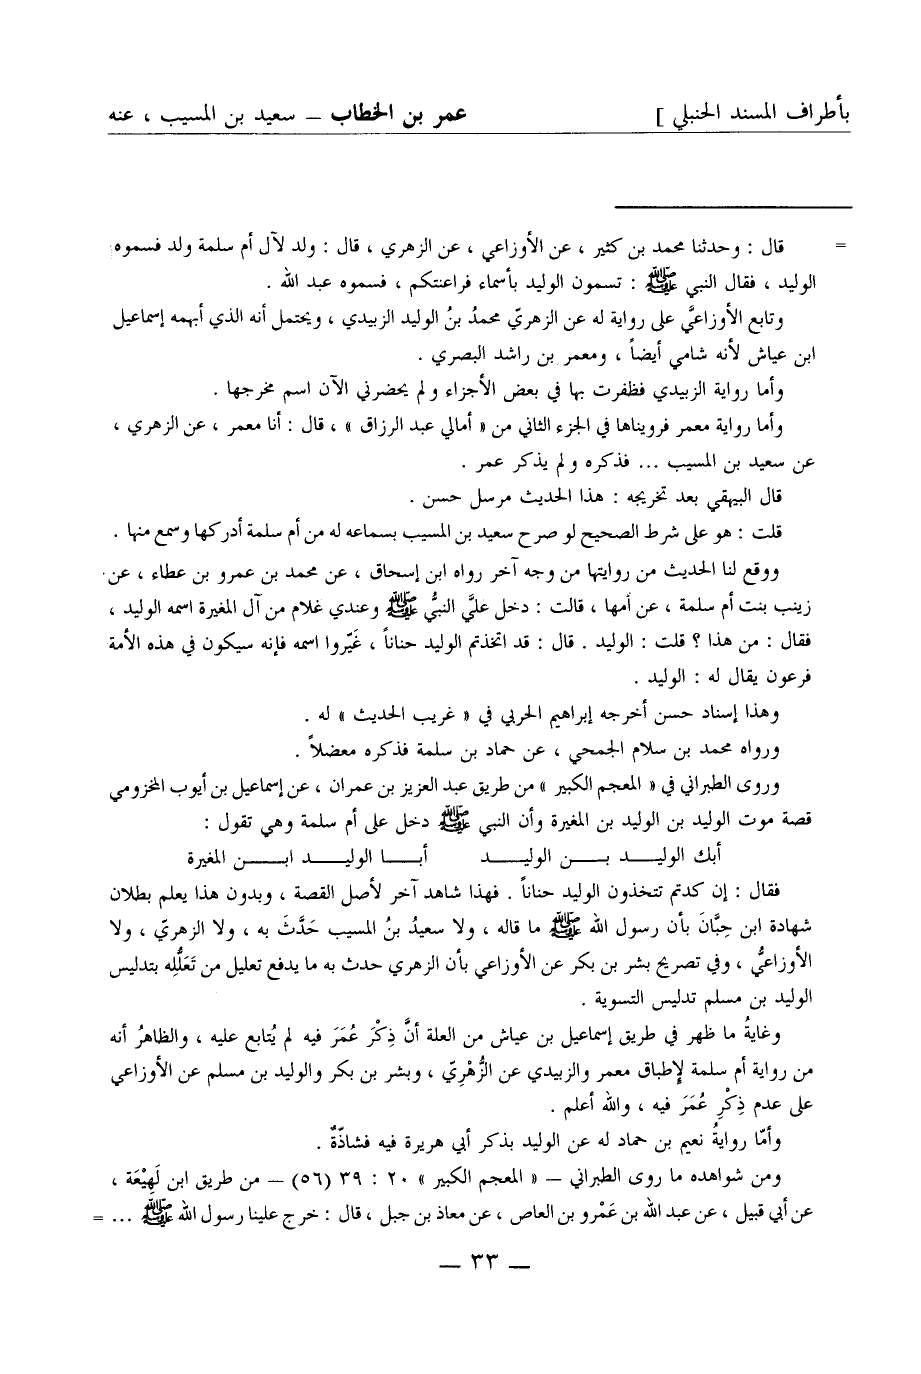 بأطراف المسند الحنبلي ] عمر بن الخطاب – سعيد بن المسيب ، عنه
= قال : وحدثنا محمد بن كثير ، عن الأوزاعي ، عن الزهري ، قال : ولد لآل أم سلمة ولد فسموه
الوليد ، فقال النبي ﷺ : تسمون الوليد بأسماء فراعنتكم ، فسموه عبد الله .
وتابع الأوزاعيَّ على رواية له عن الزهريّ محمدُ بنُ الوليد الزبيدي ، ويحتمل أنه الذي أبهمه إسماعيل
ابن عياش لأنه شامي أيضاً ، ومعمر بن راشد البصري .
وأما رواية الزبيدي فظفرت بها في بعض الأجزاء ولم يحضرني الآن اسم مخرجها .
وأما رواية معمر فرويناها في الجزء الثاني من « أمالي عبد الرزاق » ، قال : أنا معمر ، عن الزهري ،
عن سعيد بن المسيب ... فذكره ولم يذكر عمر .
قال البيهقي بعد تخريجه : هذا الحديث مرسل حسن .
قلت : هو على شرط الصحيح لو صرح سعيد بن المسيب بسماعه له من أم سلمة أدركها وسمع منها .
ووقع لنا الحديث من روايتها من وجه آخر رواه ابن إسحاق ، عن محمد بن عمرو بن عطاء ، عن
زينب بنت أم سلمة ، عن أمها ، قالت : دخل عليَّ النبيُّ ﷺ وعندي غلام من آل المغيرة اسمه الوليد ،
فقال : من هذا ؟ قلت : الوليد . قال : قد اتخذتم الوليد حناناً ، غَيّروا اسمه فإنه سيكون في هذه الأمة
فرعون يقال له : الوليد .
وهذا إسناد حسن أخرجه إبراهيم الحربي في « غريب الحديث » له .
ورواه محمد بن سلام الجمحي ، عن حماد بن سلمة فذكره معضلاً .
وروى الطبراني في « المعجم الكبير » من طريق عبد العزيز بن عمران ، عن إسماعيل بن أيوب المخزومي
قصة موت الوليد بن الوليد بن المغيرة وأن النبي ﷺ دخل على أم سلمة وهي تقول :
أبك الوليـــد بـــن الوليـــد أبـــا الوليـــد ابـــن المغيرة
فقال : إن كدتم تتخذون الوليد حناناً . فهذا شاهد آخر لأصل القصة ، وبدون هذا يعلم بطلان
شهادة ابن حِبَّانَ بأن رسول الله ﷺ ما قاله ، ولا سعيدُ بنُ المسيب حَدَّثَ به ، ولا الزهريّ ، ولا
الأوزاعيُّ ، وفي تصريح بشر بن بكر عن الأوزاعي بأن الزهري حدث به ما يدفع تعليل من تَعَلَّله بتدليس
الوليد بن مسلم تدليس التسوية .
وغايةُ ما ظهر في طريق إسماعيل بن عياش من العلة أنَّ ذِكْرَ عُمَرَ فيه لم يُتابع عليه ، والظاهرُ أنه
من رواية أم سلمة لإطباق معمر والزبيدي عن الزُّهْرِيّ ، وبشر بن بكر والوليد بن مسلم عن الأوزاعي
على عدم ذِكْرِ عُمَرَ فيه ، والله أعلم .
وأمّا روايةُ نعيم بن حماد له عن الوليد بذكر أبي هريرة فيه فشاذّةٌ .
ومن شواهده ما روى الطبراني – « المعجم الكبير » ٢٠ : ٣٩ (٥٦) – من طريق ابن لَهِيْعَة ،
عن أبي قبيل ، عن عبد الله بن عَمْرو بن العاص ، عن معاذ بن جبل ، قال : خرج علينا رسول الله ﷺ ... =
– ٣٣ –